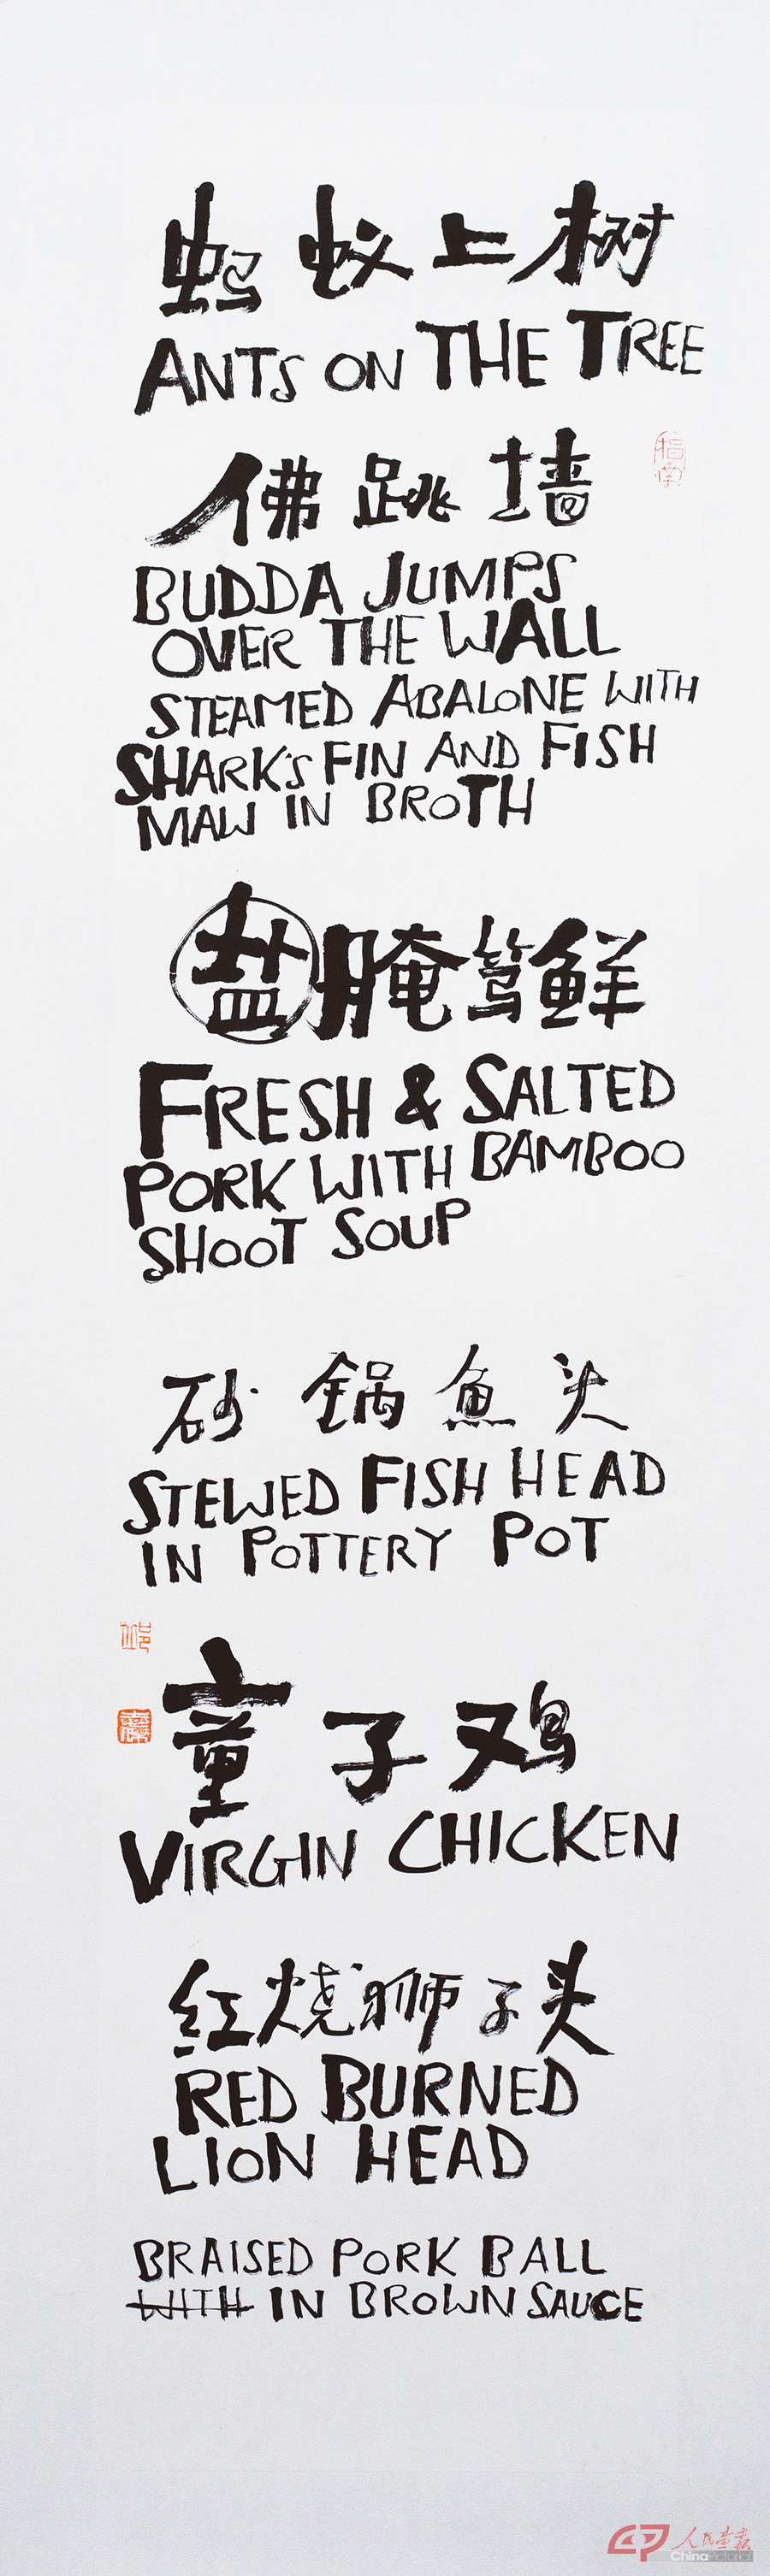 蚂蚁上树
ANTS ON THE TREE
佛跳墙
指南
BUDDA JUMPS
OVER THE WALL
STEAMED ABALONE WITH
SHARK'S FIN AND FISH
MAW IN BROTH
盐腌笃鲜
FRESH & SALTED
PORK WITH BAMBOO
SHOOT SOUP
砂锅魚头
STEWED FISH HEAD
IN POTTERY POT
邱
童子鸡
VIRGIN CHICKEN
红烧狮子头
RED BURNED
LION HEAD
BRAISED PORK BALL
WITH IN BROWN SAUCE
人民画报
ChinaPictorial